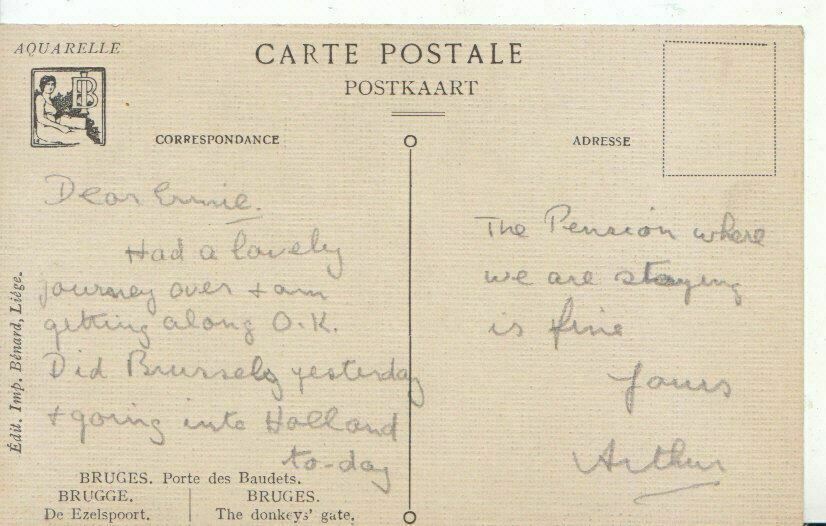 AQUARELLE
CARTE POSTALE
POSTKAART
CORRESPONDANCE
ADRESSE
Dear Ernie.
Had a lovely
journey over + am
getting along O.K.
Did Brussels yesterday
+ going into Holland
to-day
The Pension where
we are staying
is fine
Yours
Arthur
Édit. Imp. Bénard, Liége.
BRUGES. Porte des Baudets.
BRUGGE. | BRUGES.
De Ezelspoort. | The donkeys' gate.